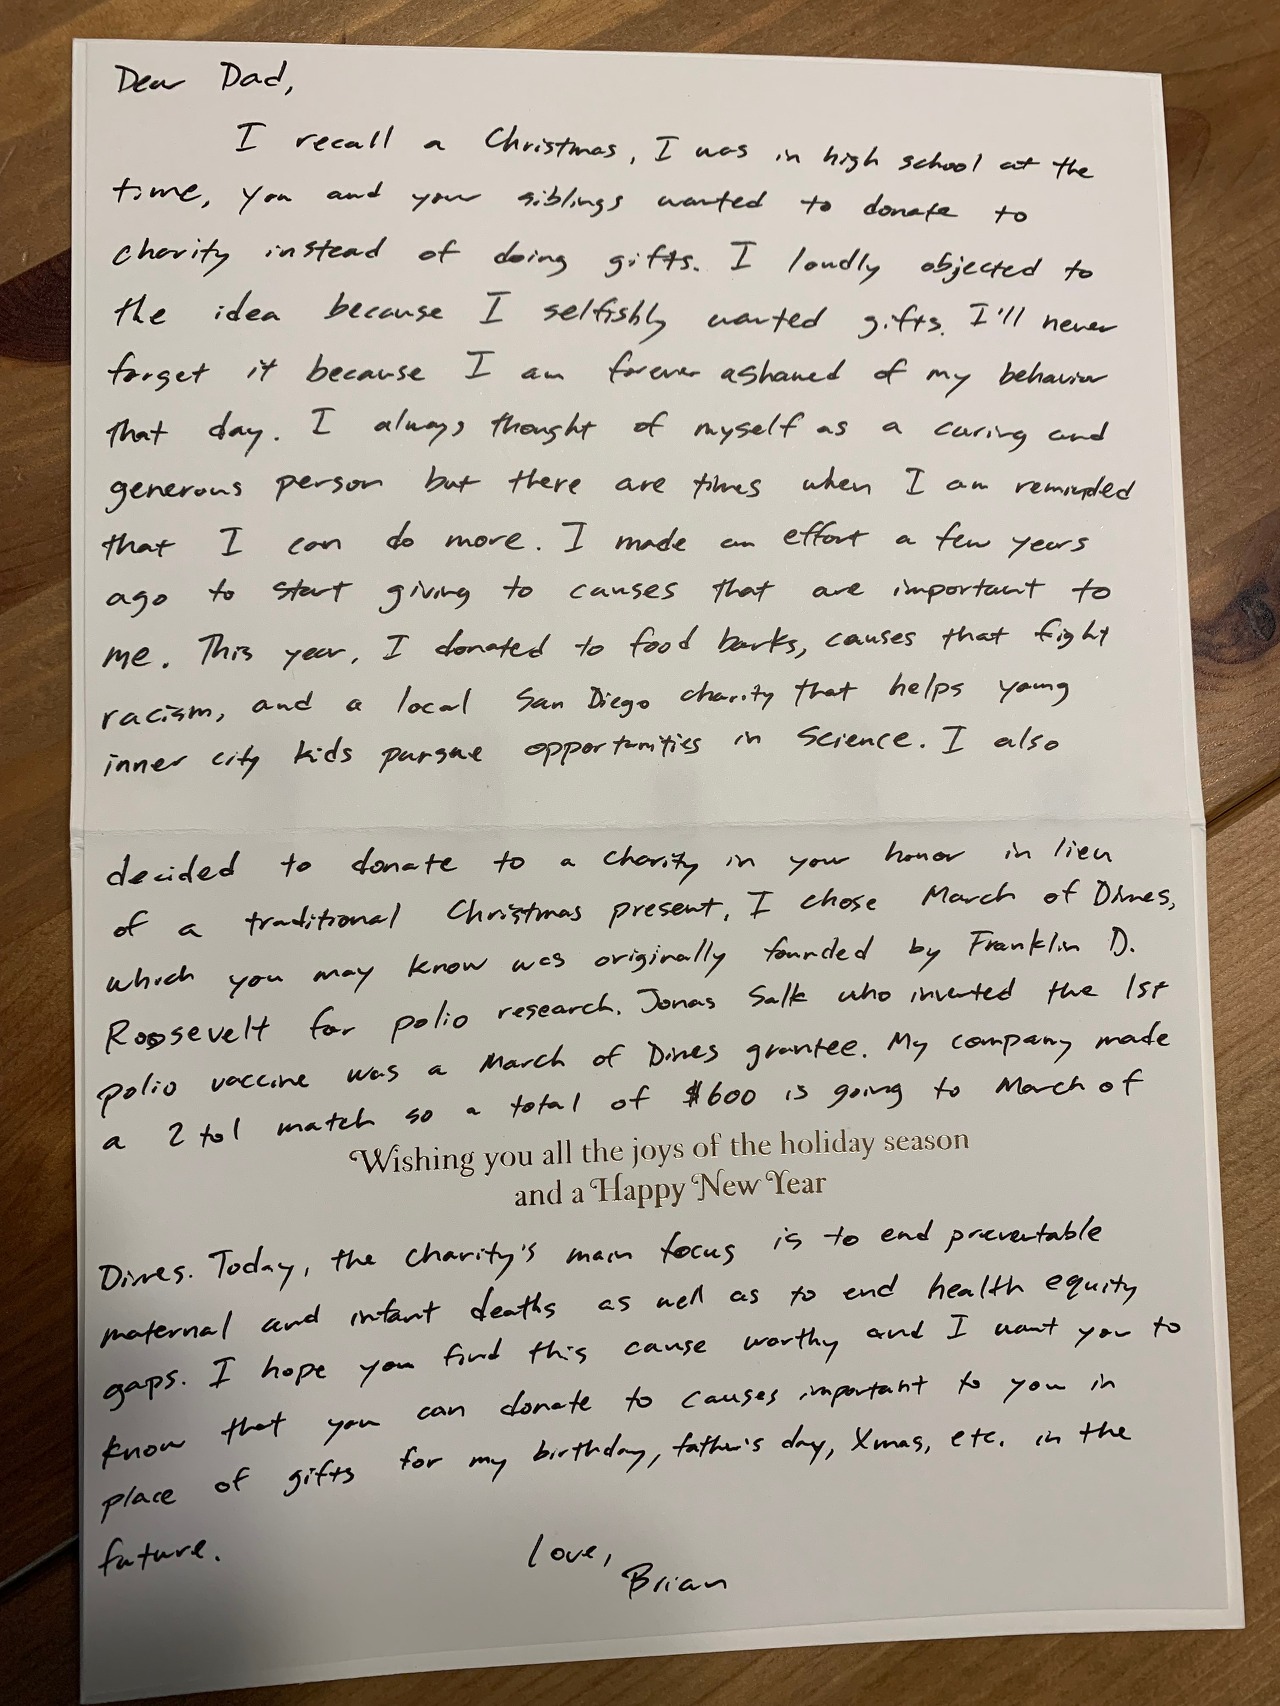 Dear Dad,
I recall a Christmas, I was in high school at the
time, you and your siblings wanted to donate to
charity instead of doing gifts. I loudly objected to
the idea because I selfishly wanted gifts. I'll never
forget it because I am forever ashamed of my behavior
that day. I always thought of myself as a caring and
generous person but there are times when I am reminded
that I can do more. I made an effort a few years
ago to start giving to causes that are important to
me. This year, I donated to food banks, causes that fight
racism, and a local San Diego charity that helps young
inner city kids pursue opportunities in Science. I also
decided to donate to a charity in your honor in lieu
of a traditional Christmas present, I chose March of Dimes,
which you may know was originally founded by Franklin D.
Roosevelt for polio research. Jonas Salk who invented the 1st
polio vaccine was a March of Dimes grantee. My company made
a 2 to 1 match so a total of $600 is going to March of
Wishing you all the joys of the holiday season
and a Happy New Year
Dimes. Today, the charity's main focus is to end preventable
maternal and infant deaths as well as to end health equity
gaps. I hope you find this cause worthy and I want you to
know that you can donate to causes important to you in
place of gifts for my birthday, father's day, Xmas, etc. in the
future.
Love,
Brian